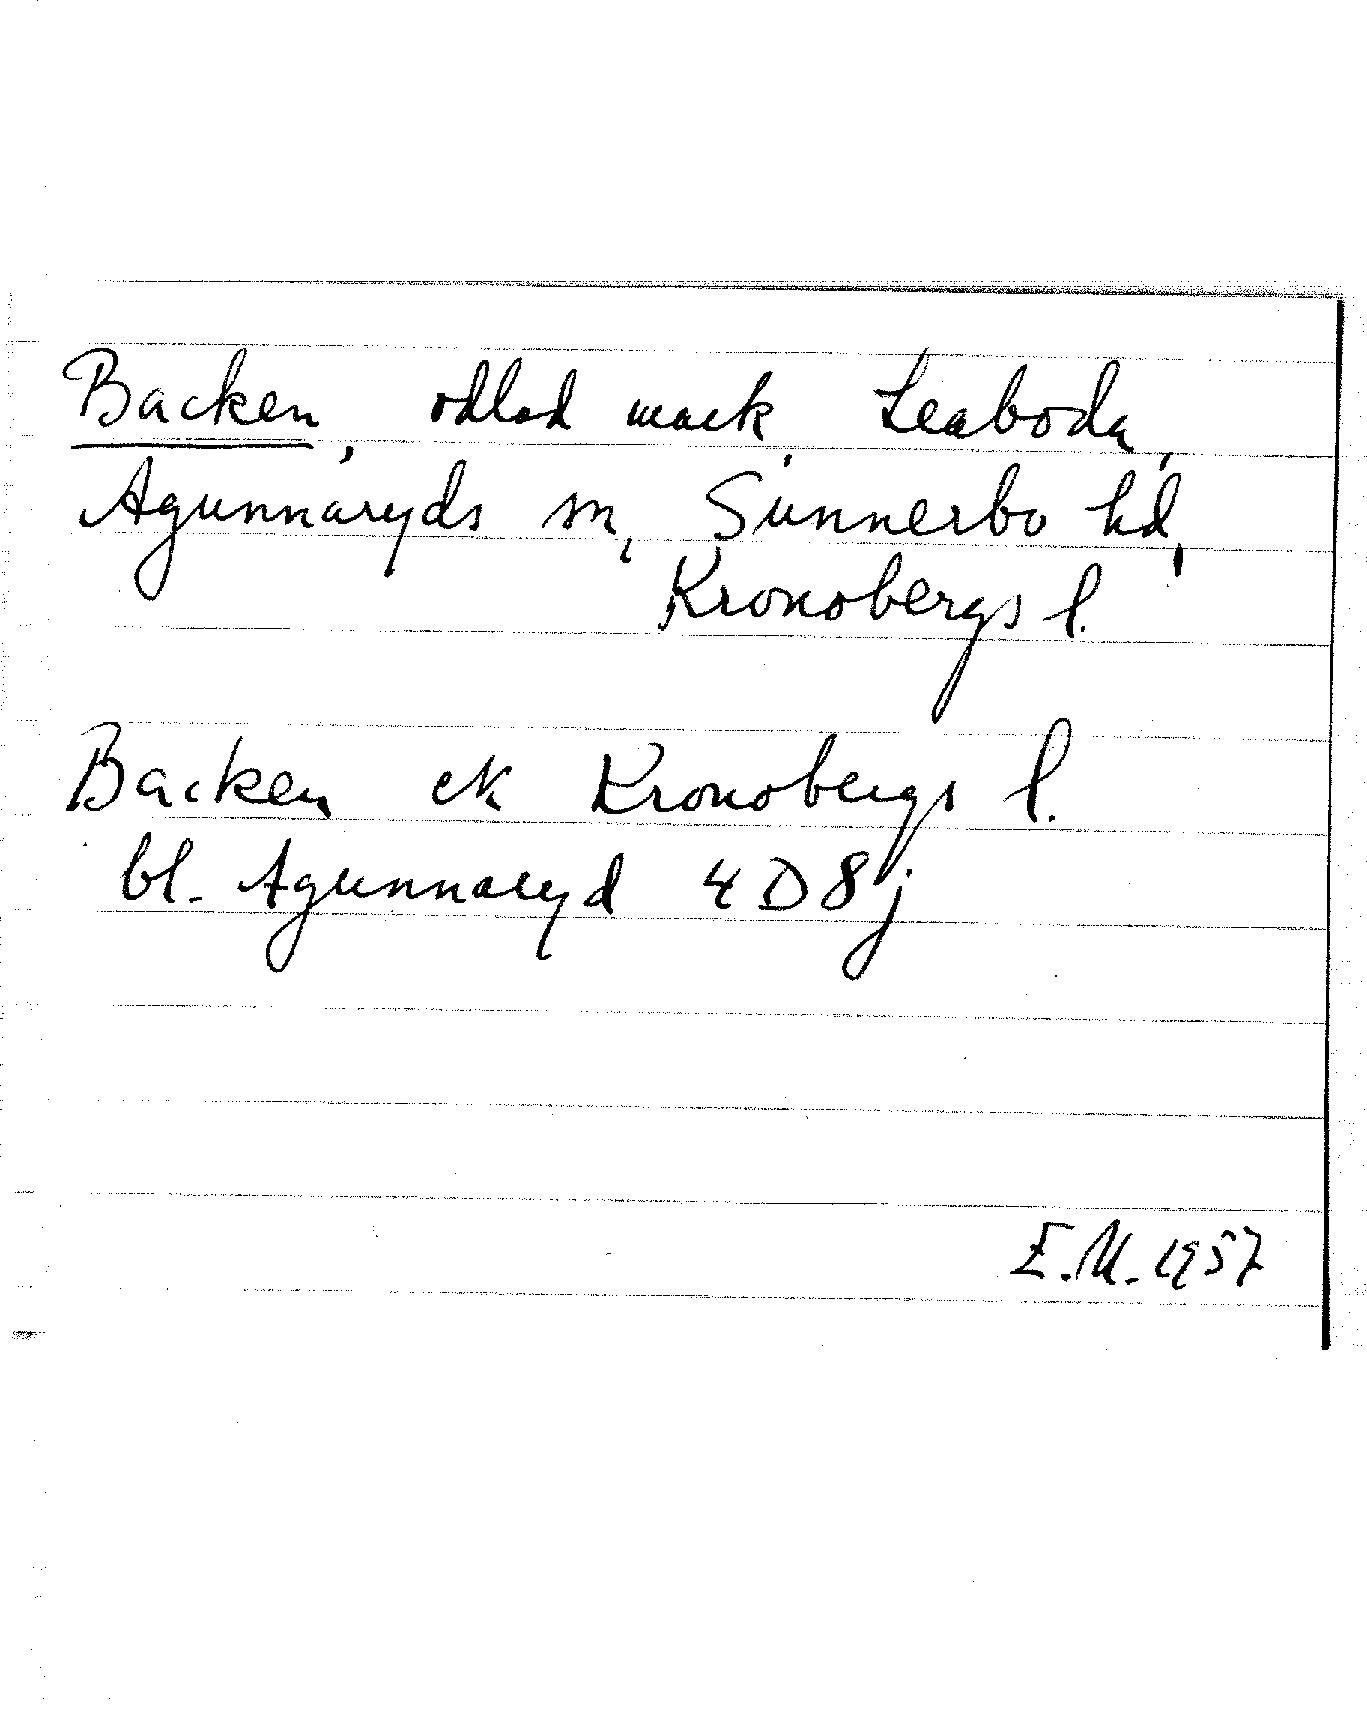 Backen, odlad mark, Leaboda,
Agunnaryds sn, Sunnerbo hd,
Kronobergs l.
Backen ek Kronobergs l.
bl. Agunnaryd 4D8j
E.M. 1957